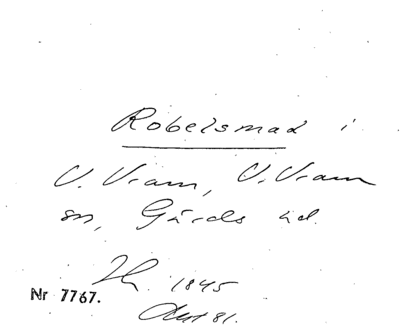 Robelsmad i
V. Vram, V. Vram
sn, Gärds hd.
1845
Nr 7767.
81.